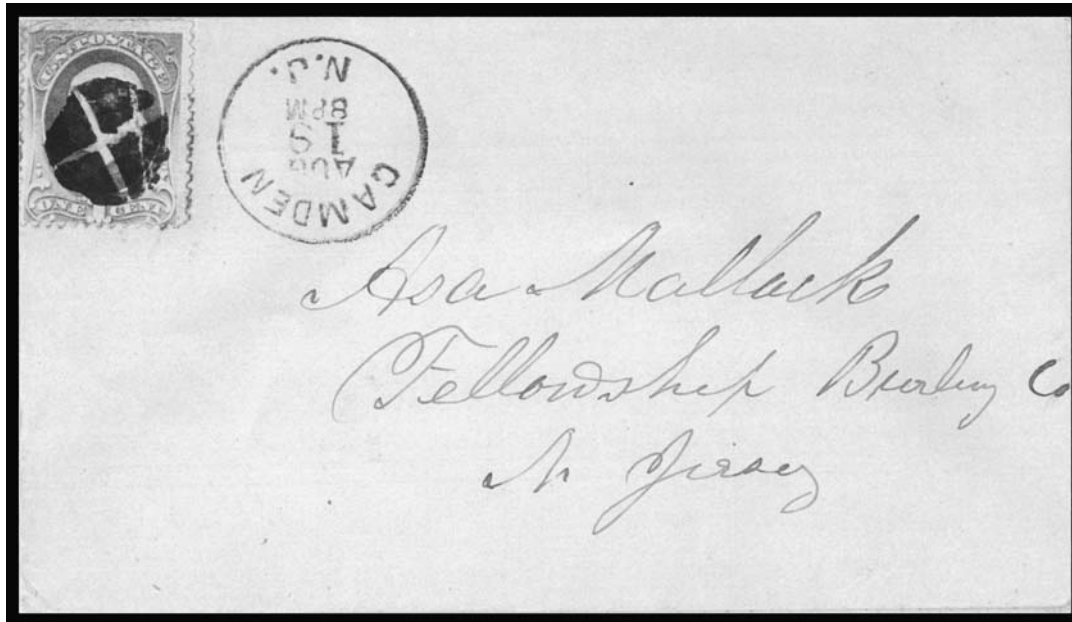 U.S. POSTAGE
ONE CENT
CAMDEN
AUG
8PM
N.J.
Asa Matlack
Fellowship Burling Co
N Jersey